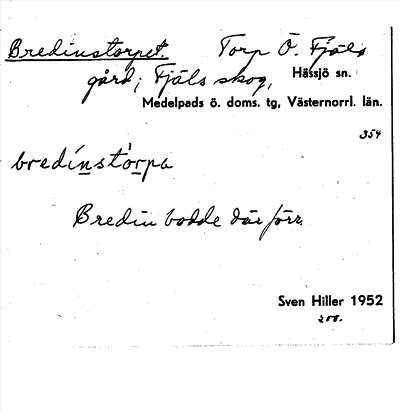 Bredinstorpet. Torp Ö. Fjäls
gård, Fjäls skog, Hässjö sn.
Medelpads ö. doms. tg, Västernorrl. län.
354
bredínstòrpa
Bredin bodde där förr.
Sven Hiller 1952